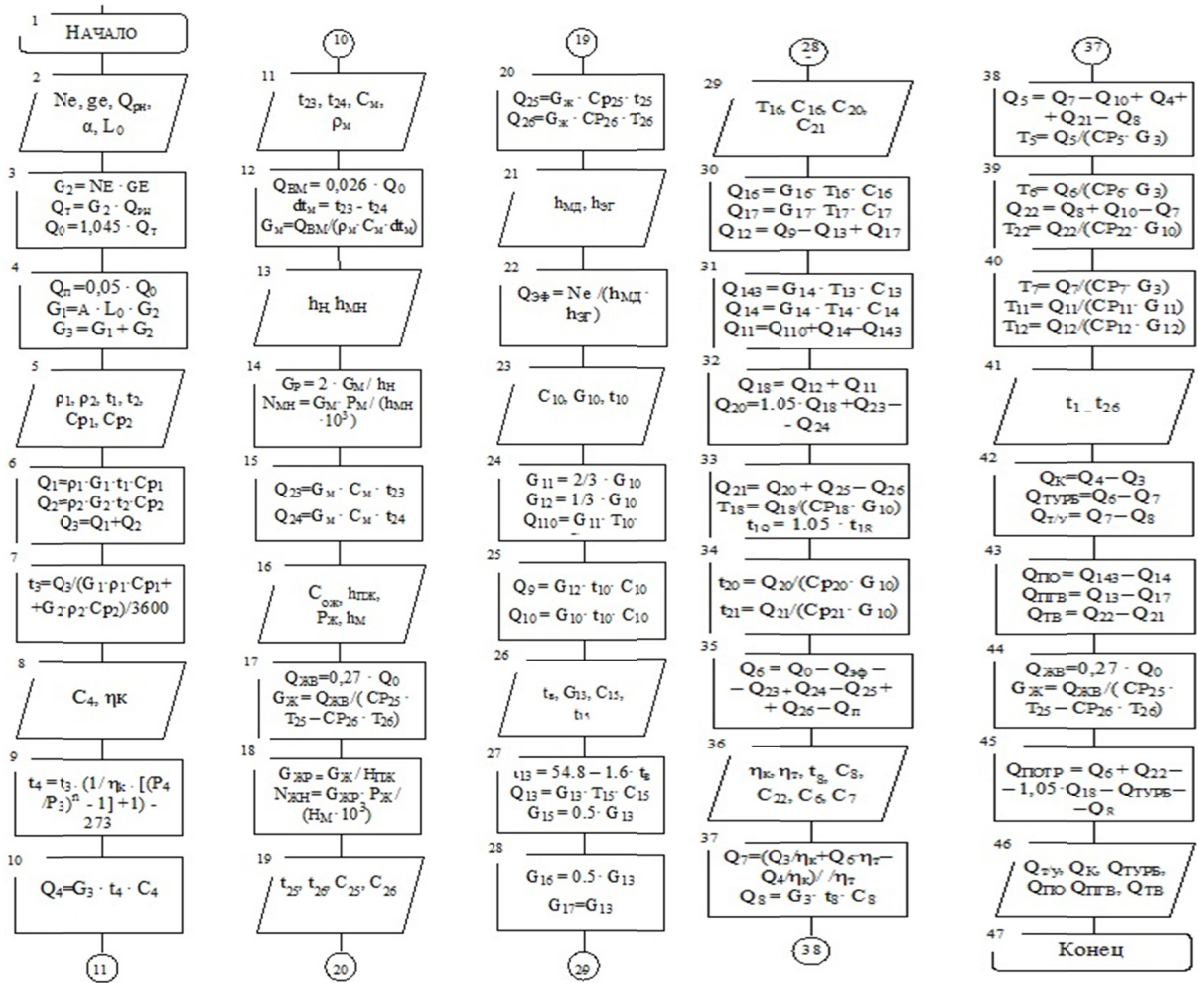 1
НАЧАЛО
2
Ne, ge, Qрн,
α, L0
3
G2= NE · GE
Qт= G2 · Qрн
Q0=1,045 · Qт
4
Qп=0,05 · Q0
G1=A · L0 · G2
G3 = G1 + G2
5
ρ1, ρ2, t1, t2,
Cp1, Cp2
6
Q1=ρ1·G1·t1·Cp1
Q2=ρ2·G2·t2·Cp2
Q3=Q1+Q2
7
t3=Q3/(G1·ρ1·Cp1+
+G2·ρ2·Cp2)/3600
8
C4, ηк
9
t4 = t3 · (1/ ηк · [(P4
/P3)ⁿ - 1] +1) –
273
10
Q4=G3 · t4 · C4
11
10
11
t23, t24, Cм,
ρм
12
QВМ = 0,026 · Q0
dtм = t23 - t24
Gм=QВМ/(ρм·Cм·dtм)
13
hН, hМН
14
GР = 2 · GМ / hН
NМН = GМ· PМ / (hМН
·10³)
15
Q23=Gм · Cм · t23
Q24=Gм · Cм · t24
16
Cож, hПЖ,
PЖ, hМ
17
QЖВ=0,27 · Q0
GЖ=QЖВ/( CP25 ·
T25– CP26 · T26)
18
GЖР = GЖ / HПЖ
NЖН = GЖР· PЖ /
(HМ · 10³)
19
t25, t26, C25, C26
20
19
20
Q25=GЖ · Cp25 · t25
Q26=GЖ · CP26 · T26
21
hМД, hЭГ
22
QЭФ = Ne /(hМД ·
hЭГ)
23
C10, G10, t10
24
G11 = 2/3 · G10
G12 = 1/3 · G10
Q110 = G11· T10·
25
Q9 = G12· t10· C10
Q10 = G10· t10· C10
26
tв, G13, C15,
t15
27
t13 = 54.8 – 1.6 · tв
Q13 = G13· T15· C15
G15 = 0.5 · G13
28
G16 = 0.5 · G13
G17=G13
29
28
29
T16, C16, C20,
C21
30
Q16 = G16· T16· C16
Q17 = G17· T17· C17
Q12 = Q9 – Q13 + Q17
31
Q143 = G14 · T13 · C13
Q14 = G14 · T14 · C14
Q11=Q110+Q14–Q143
32
Q18 = Q12 + Q11
Q20=1.05· Q18 +Q23–
- Q24
33
Q21= Q20 + Q25 – Q26
T18 = Q18/(CP18 · G10)
t19 = 1.05 · t18
34
t20 = Q20/(Cp20· G10)
t21 = Q21/(Cp21· G10)
35
Q6 = Q0 – QЭФ –
– Q23+ Q24 – Q25 +
+ Q26 – Qп
36
ηк, ηт, t8, C8,
C22, C6, C7
37
Q7=(Q3/ηк+Q6·ηт–
Q4/ηк)/ /ηт
Q8 = G3· t8· C8
38
37
38
Q5 = Q7 – Q10 + Q4 +
+ Q21 – Q8
T5= Q5/(CP5· G3)
39
T6= Q6/(CP6· G3)
Q22 = Q8 + Q10 – Q7
T22= Q22/(CP22 · G10)
40
T7= Q7/(CP7· G3)
T11= Q11/(CP11· G11)
T12= Q12/(CP12· G12)
41
t1 .. t26
42
QК=Q4 – Q3
QТУРБ=Q6 – Q7
QТ/У = Q7 – Q8
43
QПО= Q143 – Q14
QПГВ = Q13 – Q17
QТВ = Q22 – Q21
44
QЖВ=0,27 · Q0
GЖ = QЖВ/( CP25 ·
T25 – CP26 · T26)
45
QПОТР = Q6 + Q22 –
– 1,05·Q18 – QТУРБ–
–Q8
46
QТ/У, QК, QТУРБ,
QПО QПГВ, QТВ
47
Конец